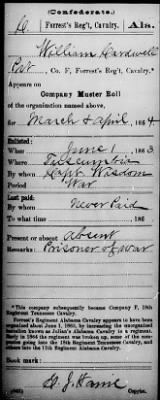 (Confederate.)
Forrest's Reg't, Cavalry. Ala.
William Hardwell
Pvt, Co. F, Forrest's Reg't, Cavalry.*
Appears on
Company Muster Roll
of the organization named above,
for March & April, 1864
Enlisted:
When June 1, 1863
Where Tuscumbia
By whom Capt. Wisdom
Period War
Last paid:
By whom Never Paid
To what time , 186
Present or absent Absent
Remarks: Prisoner of war
*This company subsequently became Company F, 18th
Regiment Tennessee Cavalry.
Forrest's Regiment Alabama Cavalry appears to have been
organized about June 1, 1863, by increasing the
organization known as Julian's Alabama Cavalry to a regiment.
Early in 1864 the regiment was broken up, some of the companies
going into the 18th Regiment Tennessee Cavalry, and
others into the 11th Regiment Alabama Cavalry.
Book mark:
Copyist.